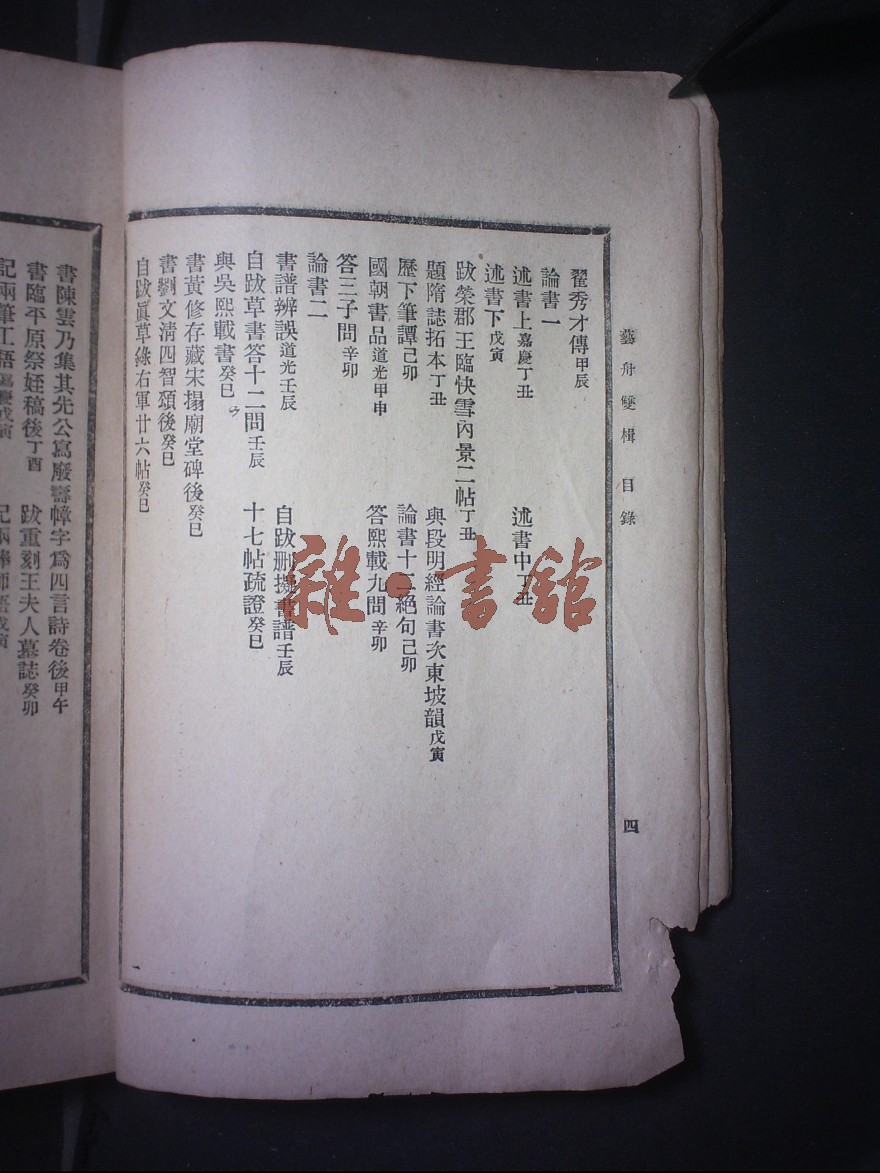 藝舟雙楫 目錄 四
翟秀才傳甲辰
論書一
述書上嘉慶丁丑 述書中丁丑
述書下戊寅
跋榮郡王臨快雪內景二帖丁丑
題隋誌拓本丁丑 與段明經論書次東坡韻戊寅
歷下筆譚己卯 論書十二絕句己卯
國朝書品道光甲申 答熙載九問辛卯
答三子問辛卯
論書二
書譜辨誤道光壬辰 自跋刪擬書譜壬辰
自跋草書答十二問壬辰 十七帖疏證癸巳
與吳熙載書癸巳
書黃修存藏宋搨廟堂碑後癸巳
書劉文清四智頌後癸巳
自跋眞草錄右軍廿六帖癸巳
書陳雲乃集其先公寫廢壽幛字爲四言詩卷後甲午
書臨平原祭姪稿後丁酉 跋重刻王夫人墓誌癸卯
記兩筆工語 戊寅 記兩棒師語戊寅
雜·書館